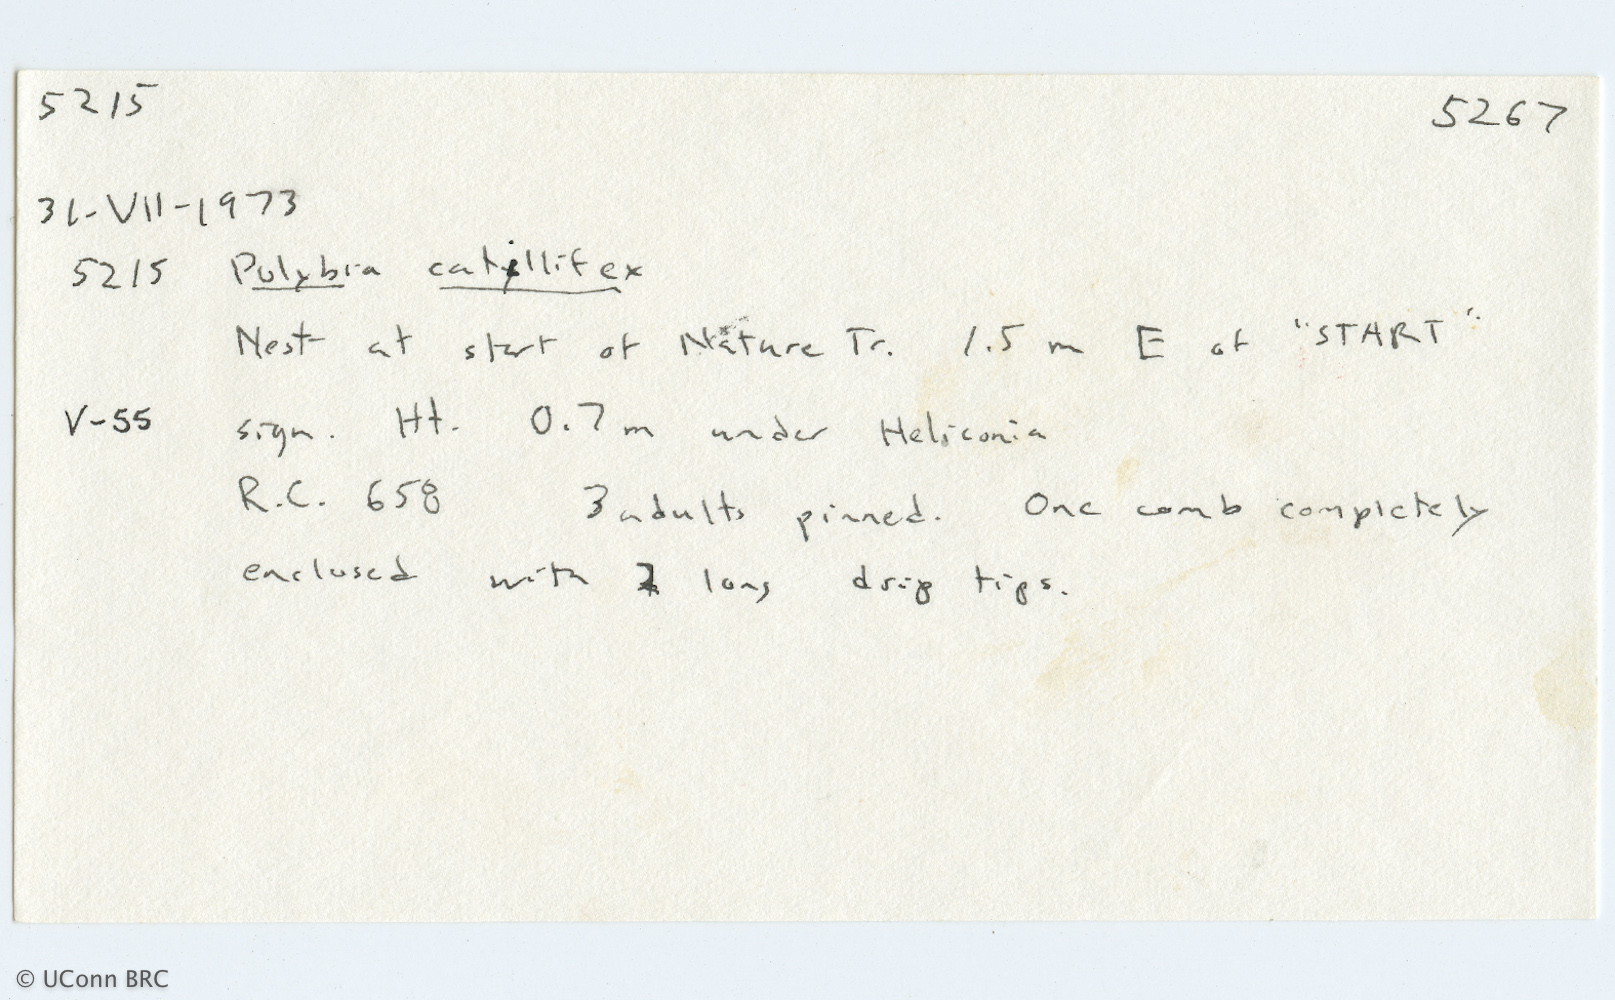 5215 5267
31-VII-1973
5215 Polybia catillifex
Nest at start of Nature Tr. 1.5 m E of "START"
V-55 sign. Ht. 0.7 m under Heliconia
R.C. 658 3 adults pinned. One comb completely
enclosed with 2 long drip tips.
© UConn BRC